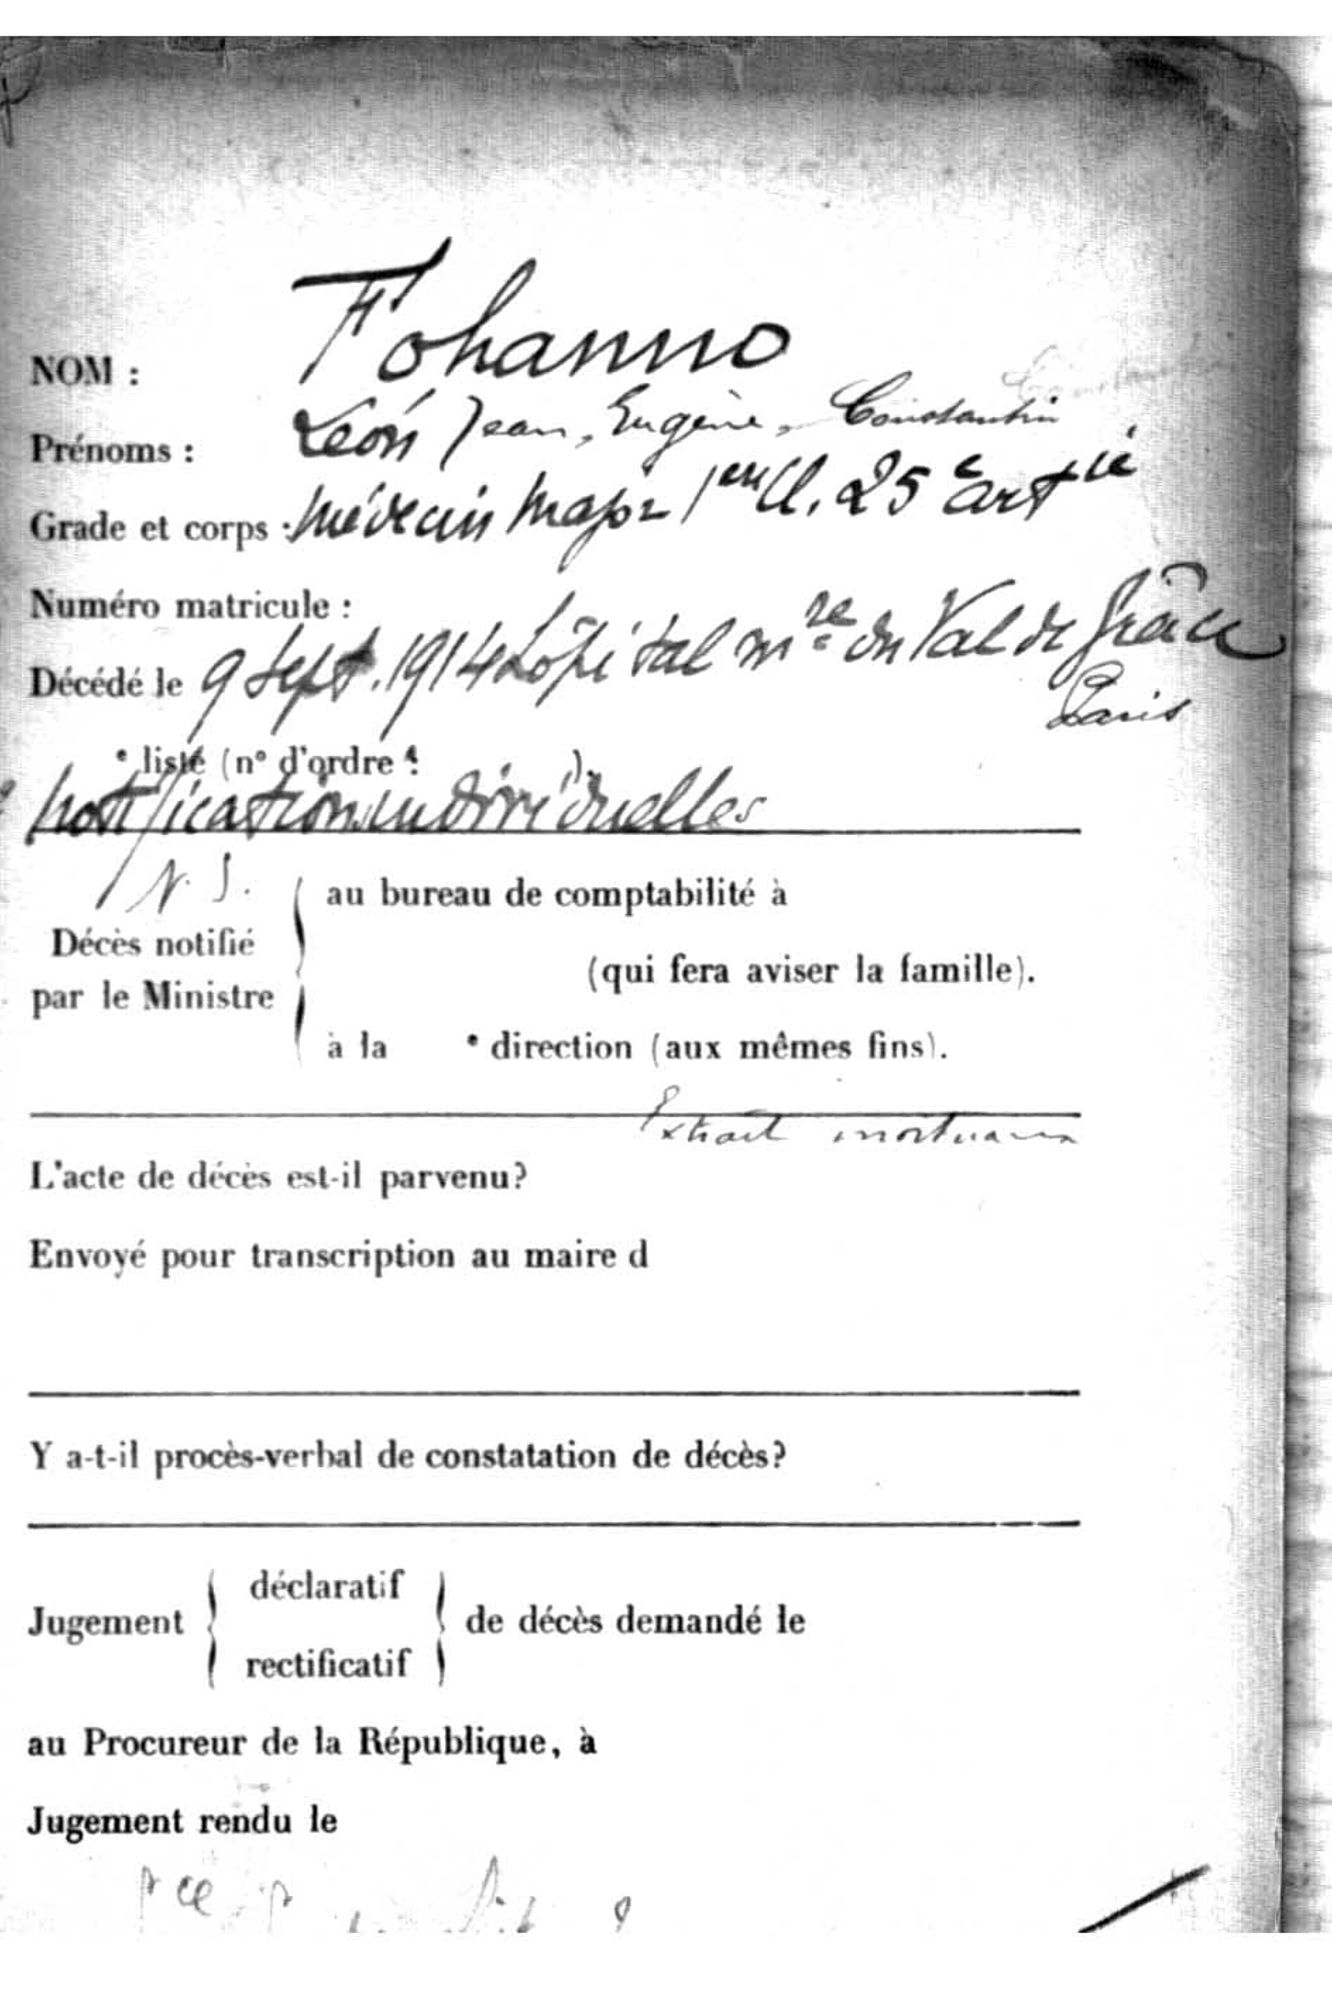 NOM : Fohanno
Constantin
Prénoms : Léon Jean, Eugène, Constantin
Grade et corps : Médecin Major 1ere Cl. 25e Artie
Numéro matricule :
Décédé le 9 Sept. 1914 hôpital mre du Val de Grâce
Paris
e liste (n° d'ordre : ).
notifications individuelles
N. S.
Décès notifié par le Ministre
au bureau de comptabilité à
(qui fera aviser la famille).
à la e direction (aux mêmes fins).
Extrait mortuaire
L'acte de décès est-il parvenu?
Envoyé pour transcription au maire d
Y a-t-il procès-verbal de constatation de décès?
Jugement { déclaratif rectificatif } de décès demandé le
au Procureur de la République, à
Jugement rendu le